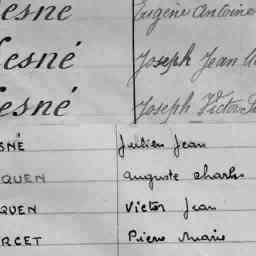 esné Eugène Antoine
esné Joseph Jean
esné Joseph Victor
SNÉ Julien Jean
QUEN Auguste Charles
QUEN Victor Jean
RCET Pierre Marie